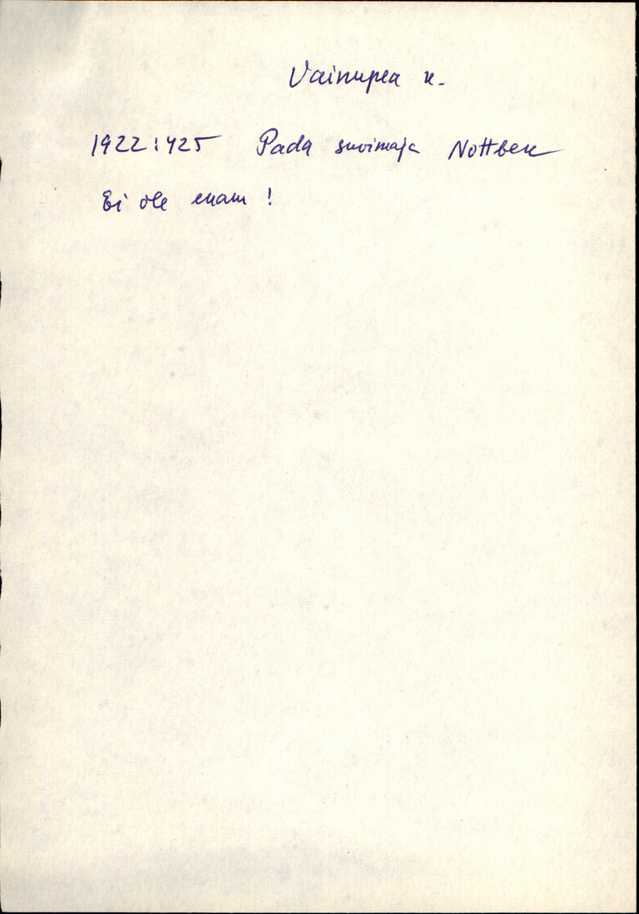 Vainupea k.
1922:425 Pada suvimaja Nottbeck
Ei ole enam!